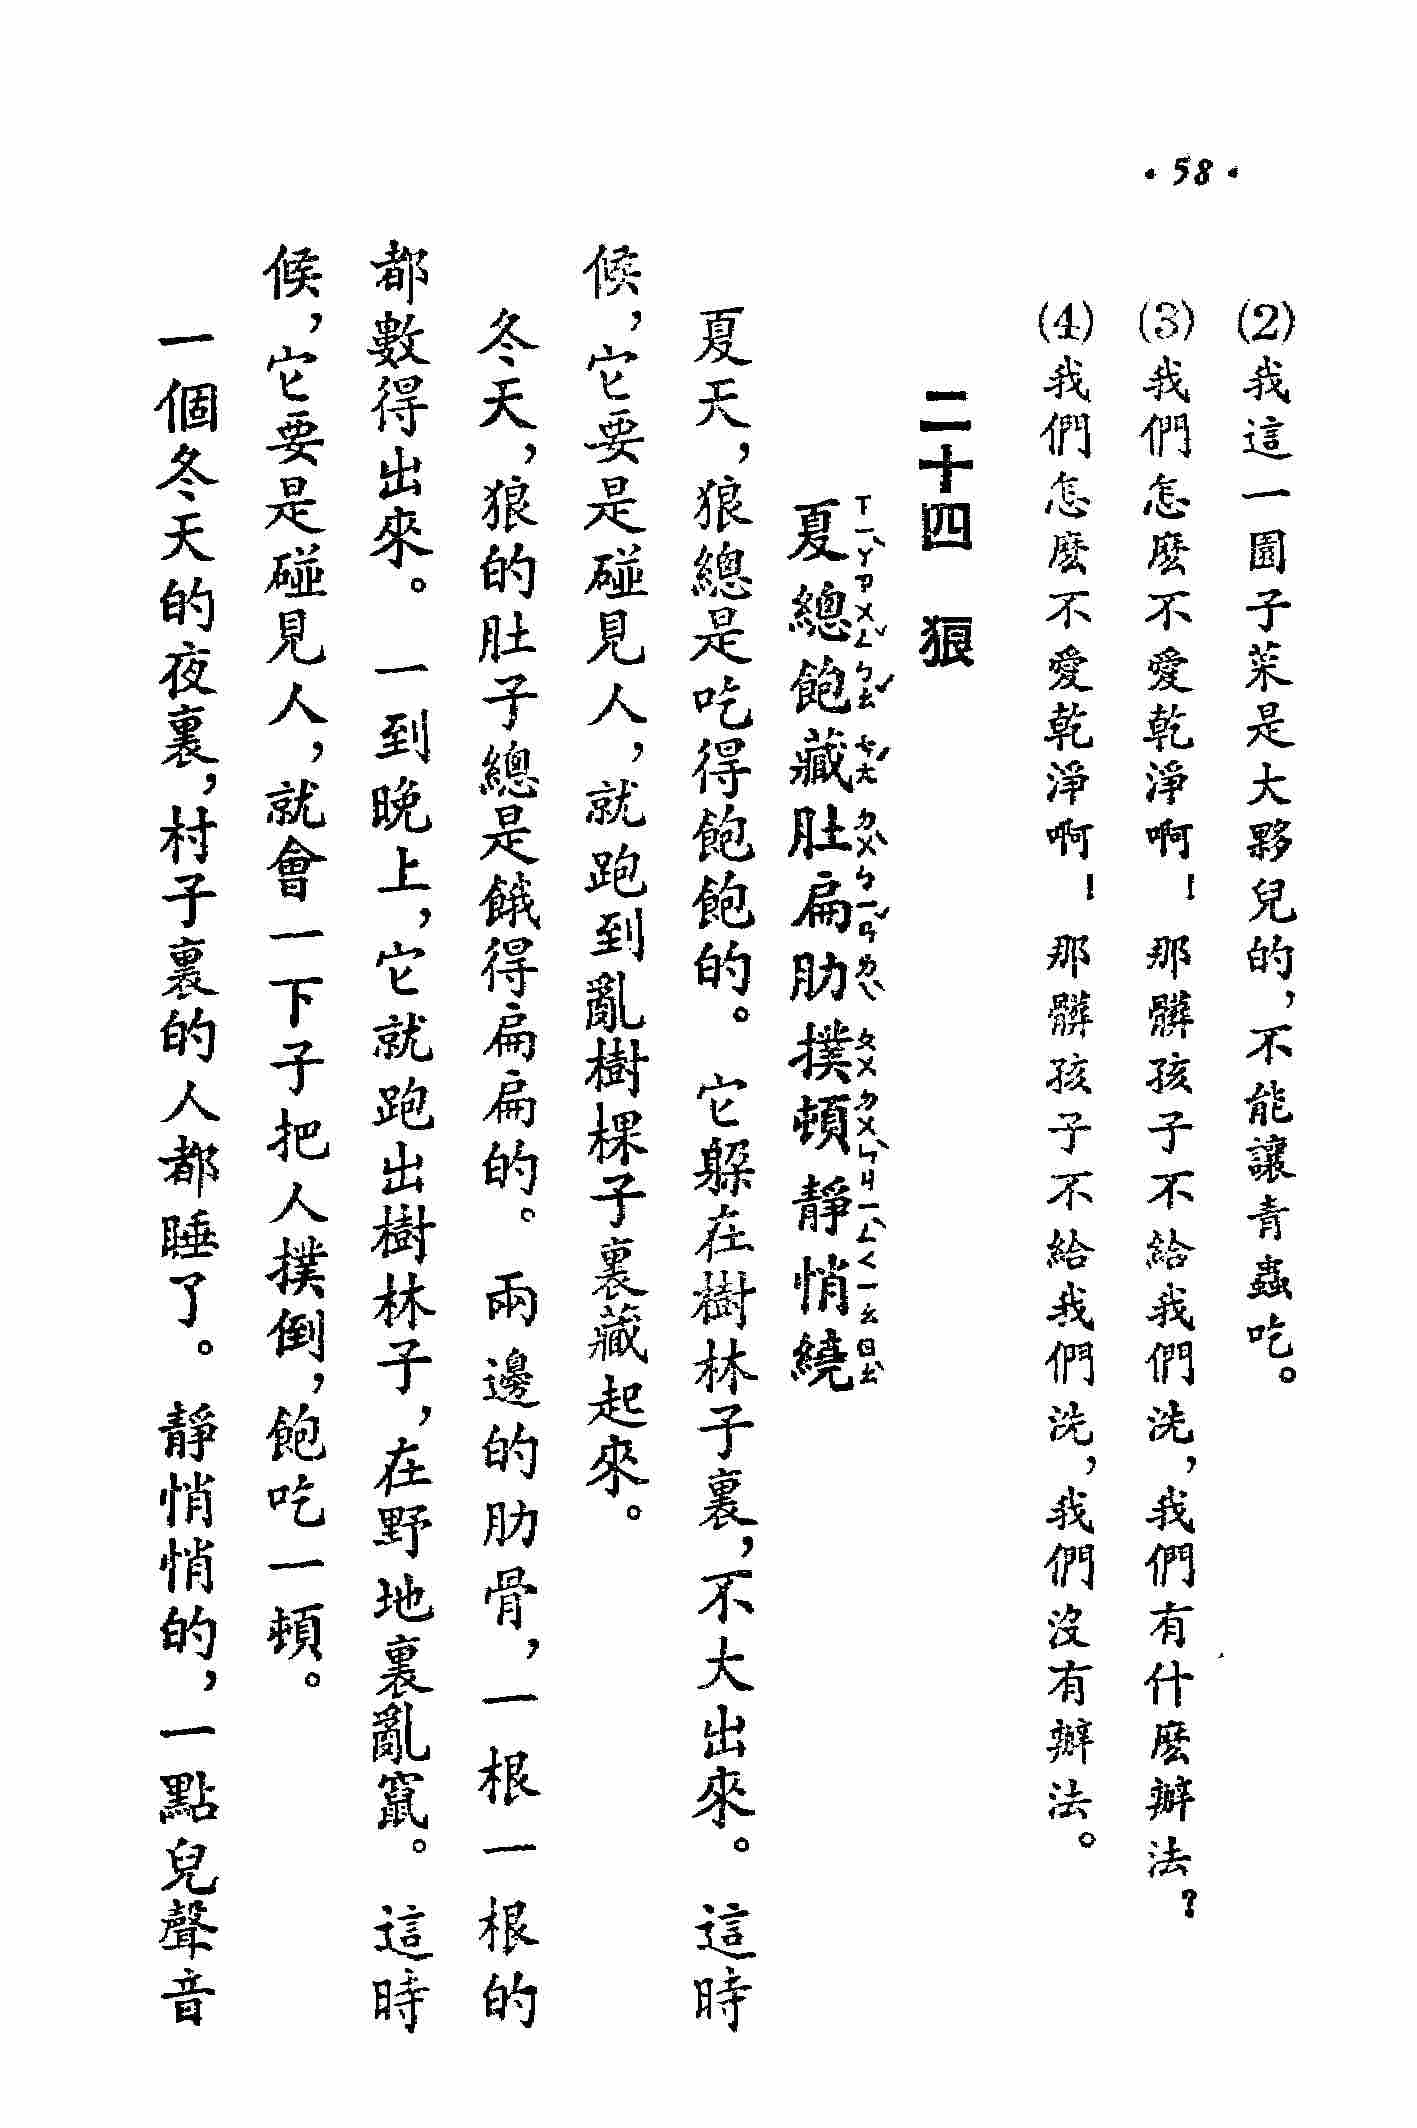 ·58·
(2)我這一園子菜是大夥兒的,不能讓青蟲吃。
(3)我們怎麽不愛乾淨啊!那髒孩子不給我們洗,我們有什麽辦法?
(4)我們怎麽不愛乾淨啊!那髒孩子不給我們洗,我們沒有辦法。
二十四 狼
夏ㄒㄧㄚˋ總ㄗㄨㄥˇ飽ㄅㄠˇ藏ㄘㄤˊ肚ㄉㄨˋ扁ㄅㄧㄢˇ肋ㄌㄟˋ撲ㄆㄨ頓ㄉㄨㄣˋ靜ㄐㄧㄥˋ悄ㄑㄧㄠ繞ㄖㄠˋ
夏天,狼總是吃得飽飽的。它躲在樹林子裏,不大出來。這時
候,它要是碰見人,就跑到亂樹棵子裏藏起來。
冬天,狼的肚子總是餓得扁扁的。兩邊的肋骨,一根一根的
都數得出來。一到晚上,它就跑出樹林子,在野地裏亂竄。這時
候,它要是碰見人,就會一下子把人撲倒,飽吃一頓。
一個冬天的夜裏,村子裏的人都睡了。靜悄悄的,一點兒聲音